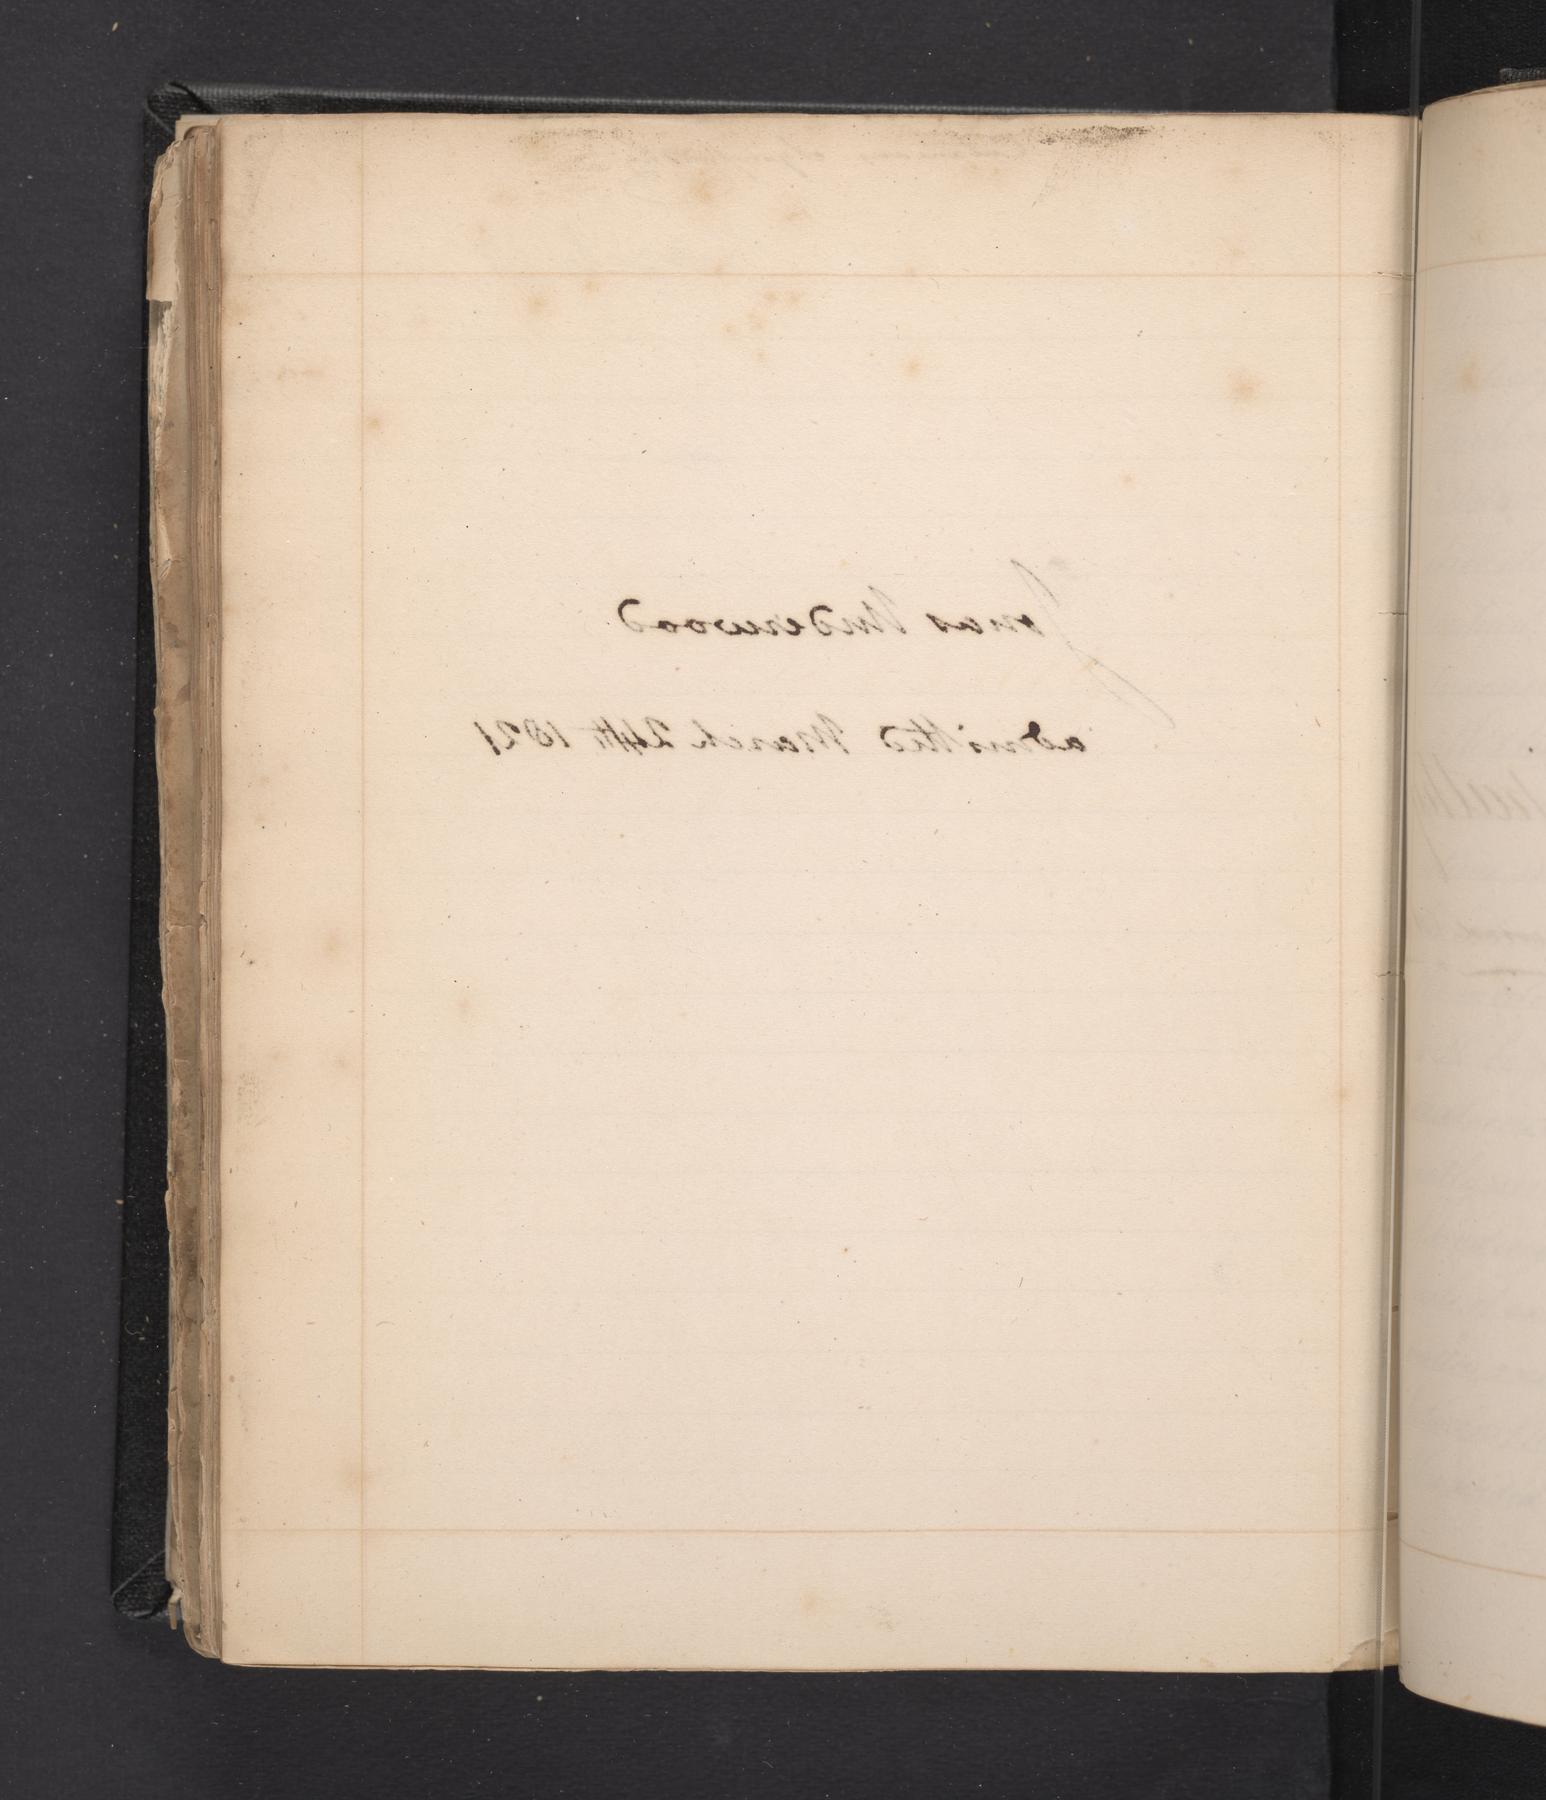 Jonas Underwood
admitted March 24th 1821